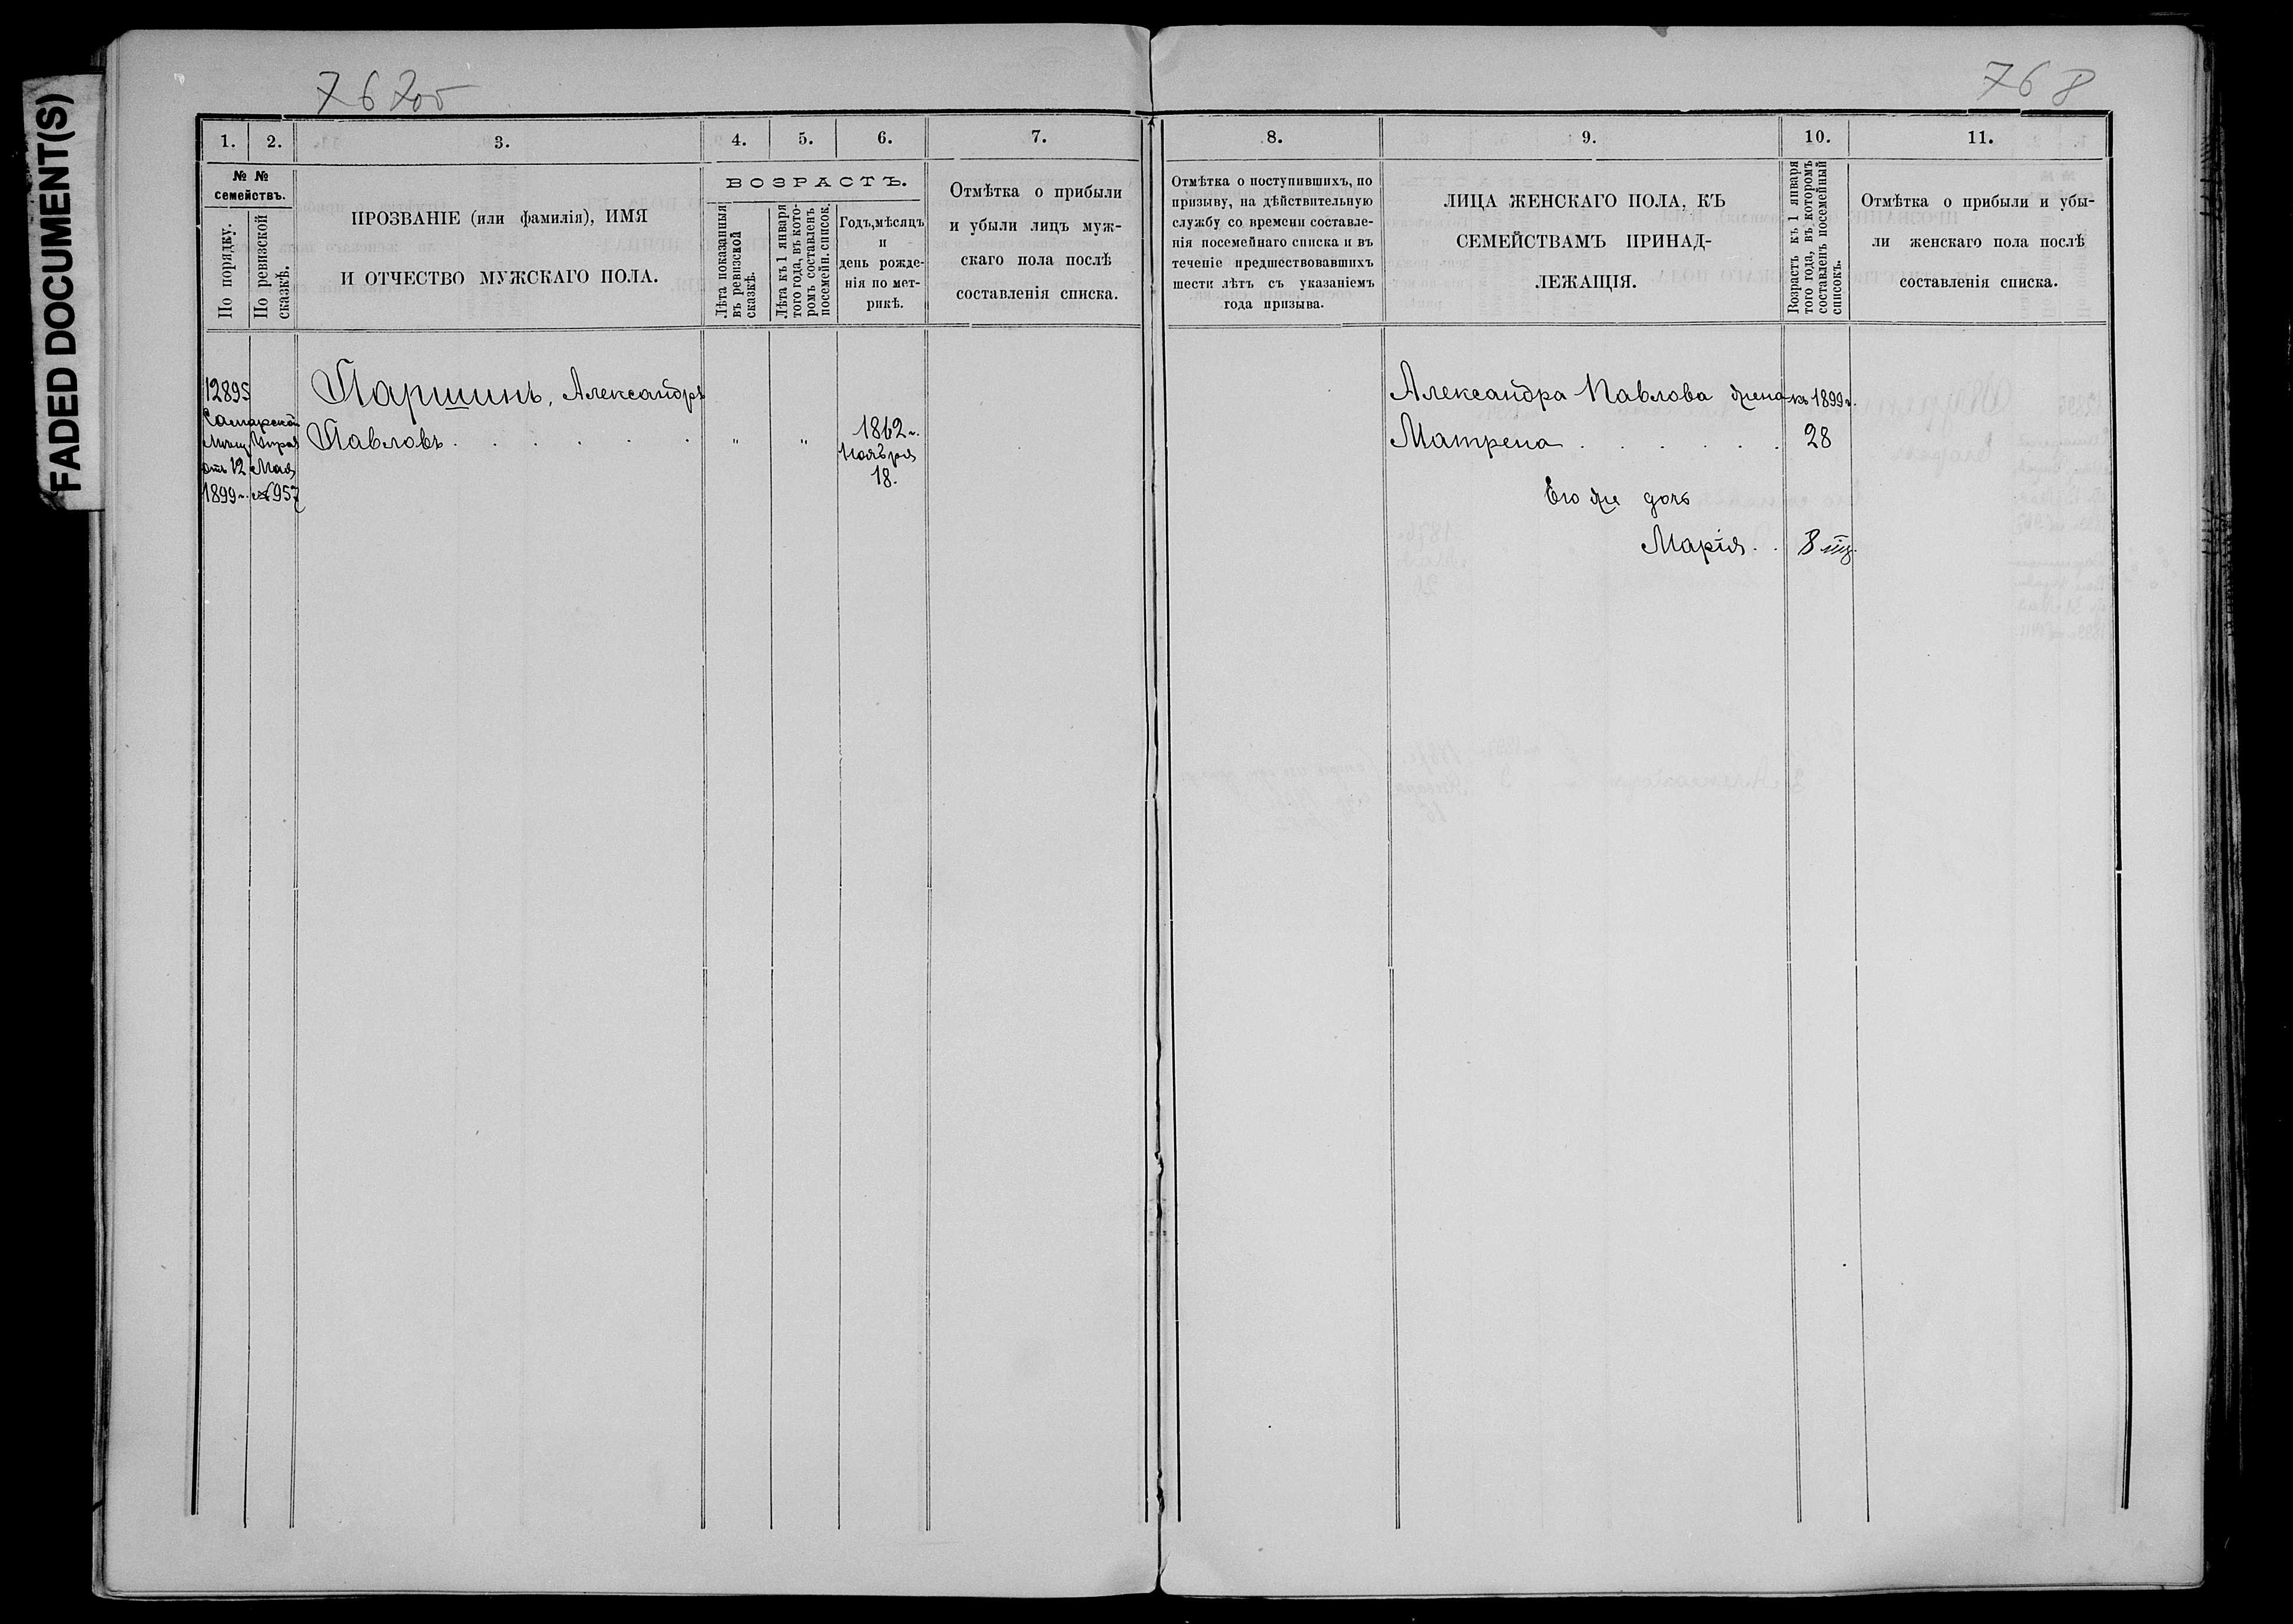 FADED DOCUMENT(S)
767об
768
1. 2. 3. 4. 5. 6. 7.
№ №
семействъ.
По порядку.
По ревизской
сказкѣ.
ПРОЗВАНІЕ (или фамилія), ИМЯ
И ОТЧЕСТВО МУЖСКАГО ПОЛА.
ВОЗРАСТЪ.
Лѣта показанныя
въ ревизской
сказкѣ.
Лѣта къ 1 января
того года, въ кото-
ромъ составленъ
посемейн. список.
Годъ, мѣсяцъ
и
день рожде-
нія по мет-
рикѣ.
Отмѣтка о прибыли
и убыли лицъ муж-
скаго пола послѣ
составленія списка.
12895
Самарской
Мѣщ. Управ
отъ 12 Мая
1899 г. № 957
Паршинъ, Александръ
Павловъ . . . . . . " "
1862 г.
Ноября
18.
8. 9. 10. 11.
Отмѣтка о поступившихъ, по
призыву, на дѣйствительную
службу со времени составле-
нія посемейнаго списка и въ
теченіе предшествовавшихъ
шести лѣтъ съ указаніемъ
года призыва.
ЛИЦА ЖЕНСКАГО ПОЛА, КЪ
СЕМЕЙСТВАМЪ ПРИНАД-
ЛЕЖАЩІЯ.
Возрастъ къ 1 января
того года, въ которомъ
составленъ посемейный
списокъ.
Отмѣтка о прибыли и убы-
ли женскаго пола послѣ
составленія списка.
Александра Павлова жена къ 1899 г.
Матрена . . . . . . 28
Его же дочь
Марія . . 8